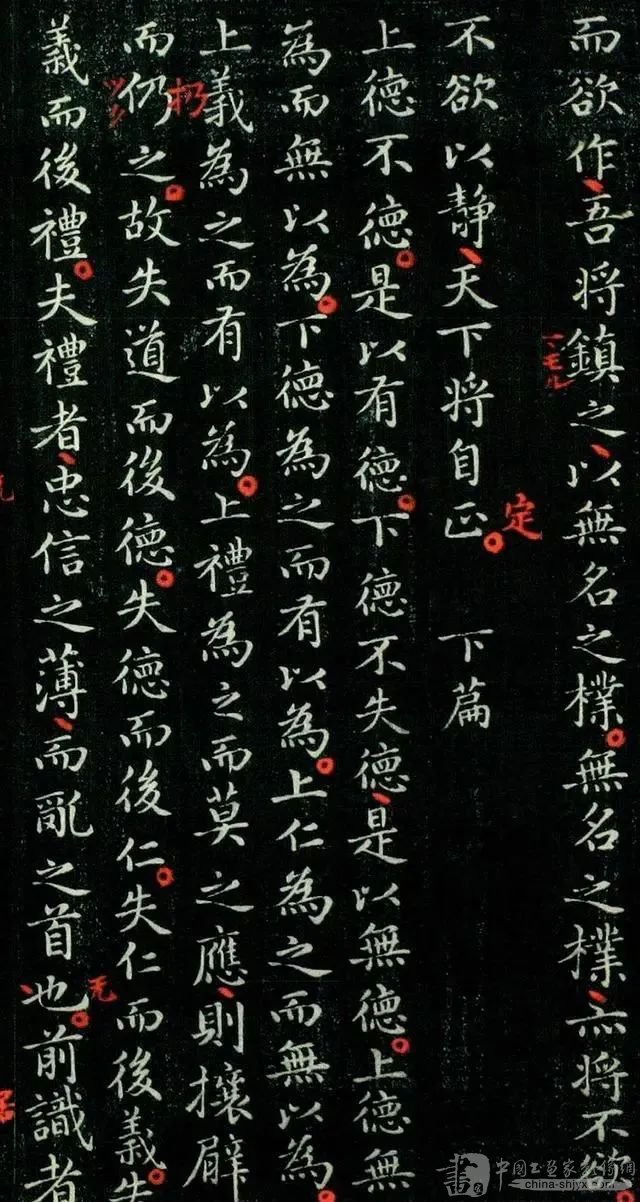 而欲作吾将鎮之以無名之樸無名之樸亦将不欲
不欲以静天下将自正
下篇
上德不德是以有德下德不失德是以無德上德無
為而無以為下德為之而有以為上仁為之而無以為
上義為之而有以為上禮為之而莫之應則攘臂
而仍之故失道而後德失德而後仁失仁而後義失
義而後禮夫禮者忠信之薄而亂之首也前識者
定
扔
无
china-shjyx.com